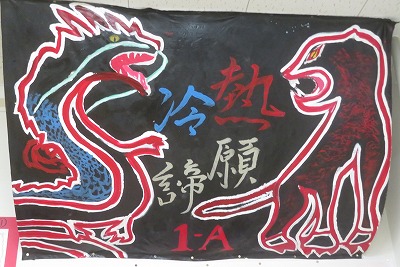 熱願
冷諦
1-A